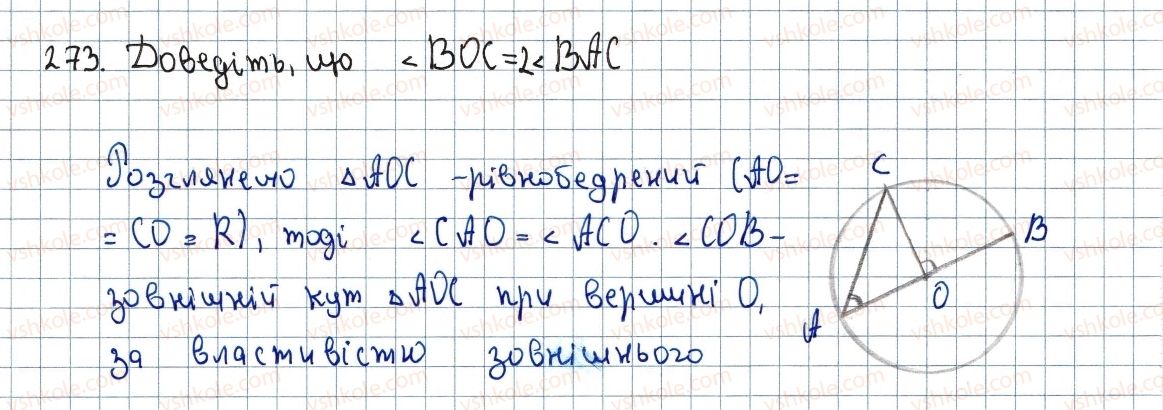 273. Доведіть, що < BOC = 2 < BAC
Розглянемо △ AOC - рівнобедрений (AO =
= CO = R), тоді < CAO = < ACO. < COB -
зовнішній кут △ AOC при вершині O,
за властивістю зовнішнього
C
B
O
A
vshkole.com